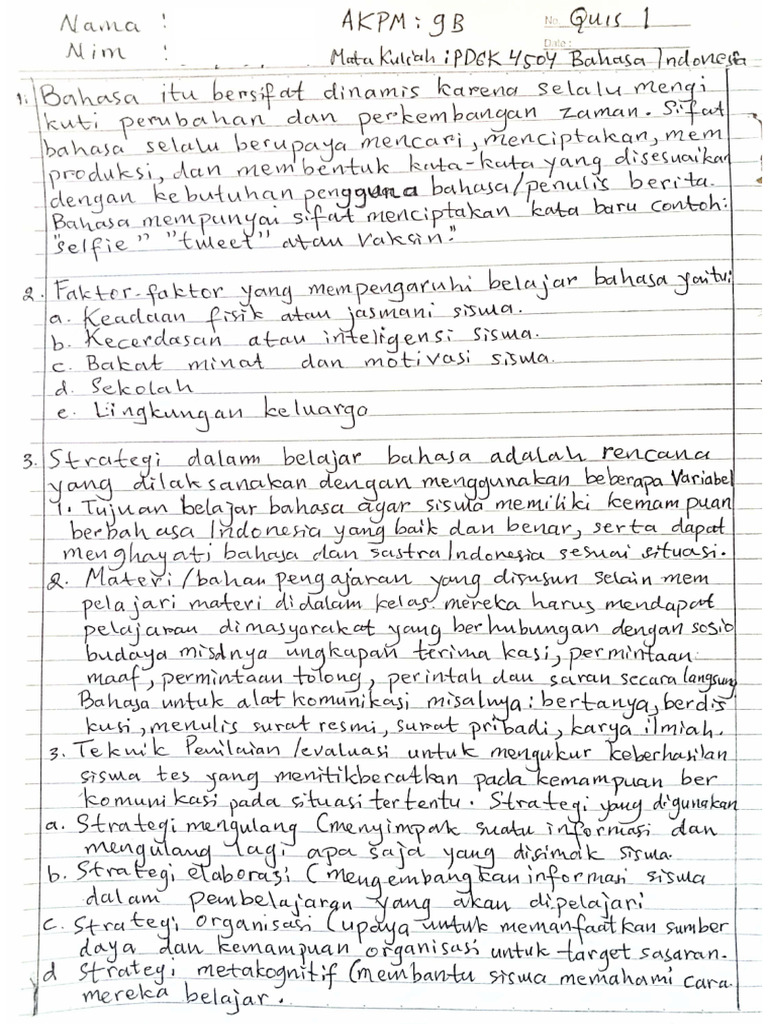 Nama :
AKPM : 9B
No. Quis 1
Nim :
Date:
Mata Kuliah : PDGK 4504 Bahasa Indonesia
1. Bahasa itu bersifat dinamis karena selalu mengi
kuti perubahan dan perkembangan zaman. Sifat
bahasa selalu berupaya mencari, menciptakan, mem
produksi, dan membentuk kata-kata yang disesuaikan
dengan kebutuhan pengguna bahasa/penulis berita.
Bahasa mempunyai sifat menciptakan kata baru contoh:
"selfie" "tweet" atau vaksin."
2. Faktor-faktor yang mempengaruhi belajar bahasa yaitu:
a. Keadaan fisik atau jasmani siswa.
b. Kecerdasan atau inteligensi siswa.
c. Bakat minat dan motivasi siswa.
d. Sekolah
e. Lingkungan keluargo
3. Strategi dalam belajar bahasa adalah rencana
yang dilaksanakan dengan menggunakan beberapa Variabel
1. Tujuan belajar bahasa agar siswa memiliki kemampuan
berbahasa Indonesia yang baik dan benar, serta dapat
menghayati bahasa dan sastra Indonesia sesuai situasi.
2. Materi/bahan pengajaran yang disusun selain mem
pelajari materi didalam kelas mereka harus mendapat
pelajaran dimasyarakat yang berhubungan dengan sosio
budaya misalnya ungkapan terima kasi, permintaan
maaf, permintaan tolong, perintah dan saran secara langsung
Bahasa untuk alat komunikasi misalnya : bertanya, berdis
kusi, menulis surat resmi, surat pribadi, karya ilmiah.
3. Teknik Penilaian /evaluasi untuk mengukur keberhasilan
siswa tes yang menitikberatkan pada kemampuan ber
komunikasi pada situasi tertentu. Strategi yang digunakan
a. Strategi mengulang (menyimpak suatu informasi dan
mengulang lagi apa saja yang disimak siswa.
b. Strategi elaborasi (mengembangkan informasi siswa
dalam pembelajaran yang akan dipelajari
c. Strategi organisasi (upaya untuk memanfaatkan sumber
daya dan kemampuan organisasi untuk target sasaran.
d Strategi metakognitif (membantu siswa memahami cara
mereka belajar.